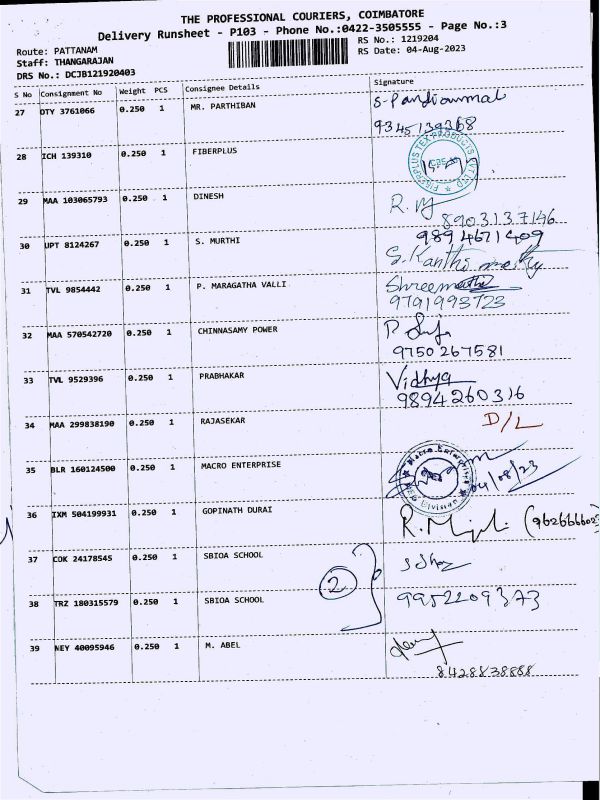 THE PROFESSIONAL COURIERS, COIMBATORE
Delivery Runsheet - P103 - Phone No.:0422-3505555 - Page No.:3
Route: PATTANAM RS No.: 1219204
Staff: THANGARAJAN RS Date: 04-Aug-2023
DRS No.: DCJB121920403
S No Consignment No Weight PCS Consignee Details Signature
27 OTY 3761066 0.250 1 MR. PARTHIBAN
9345139368
28 ICH 139310 0.250 1 FIBERPLUS
29 MAA 103065793 0.250 1 DINESH
8903137146
30 UPT 8124267 0.250 1 S. MURTHI 9894671409
31 TVL 9854442 0.250 1 P. MARAGATHA VALLI
9791993723
32 MAA 570542720 0.250 1 CHINNASAMY POWER
9750267581
33 TVL 9529396 0.250 1 PRABHAKAR Vidhya
9894260316
34 MAA 299838190 0.250 1 RAJASEKAR D/L
35 BLR 160124500 0.250 1 MACRO ENTERPRISE
04/08/23
36 IXM 504199931 0.250 1 GOPINATH DURAI
37 COK 24178545 0.250 1 SBIOA SCHOOL
2
38 TRZ 180315579 0.250 1 SBIOA SCHOOL 9952209373
39 NEY 40095946 0.250 1 M. ABEL
8428838888